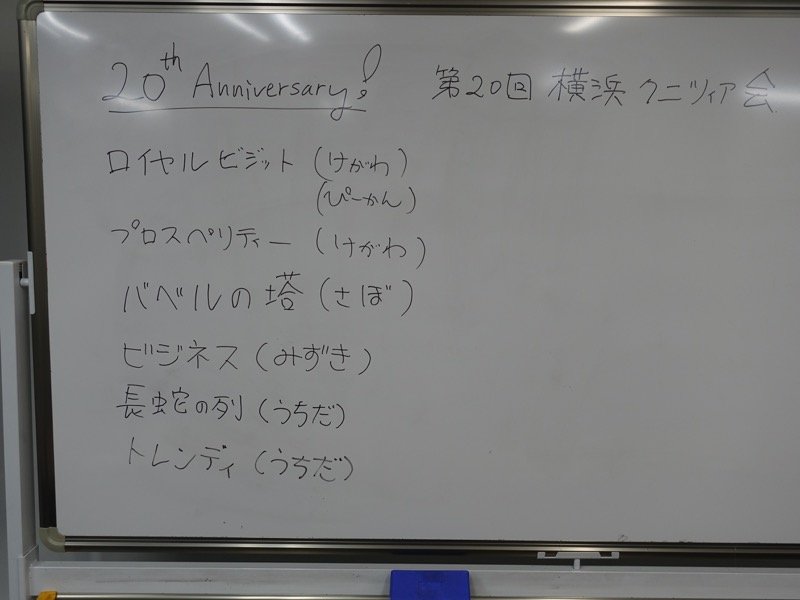 20th Anniversary!
第20回 横浜 クニツィア会
ロイヤルビジット (けがわ)
(ぴーかん)
プロスペリティー (けがわ)
バベルの塔 (さぼ)
ビジネス (みずき)
長蛇の列 (うちだ)
トレンディ (うちだ)